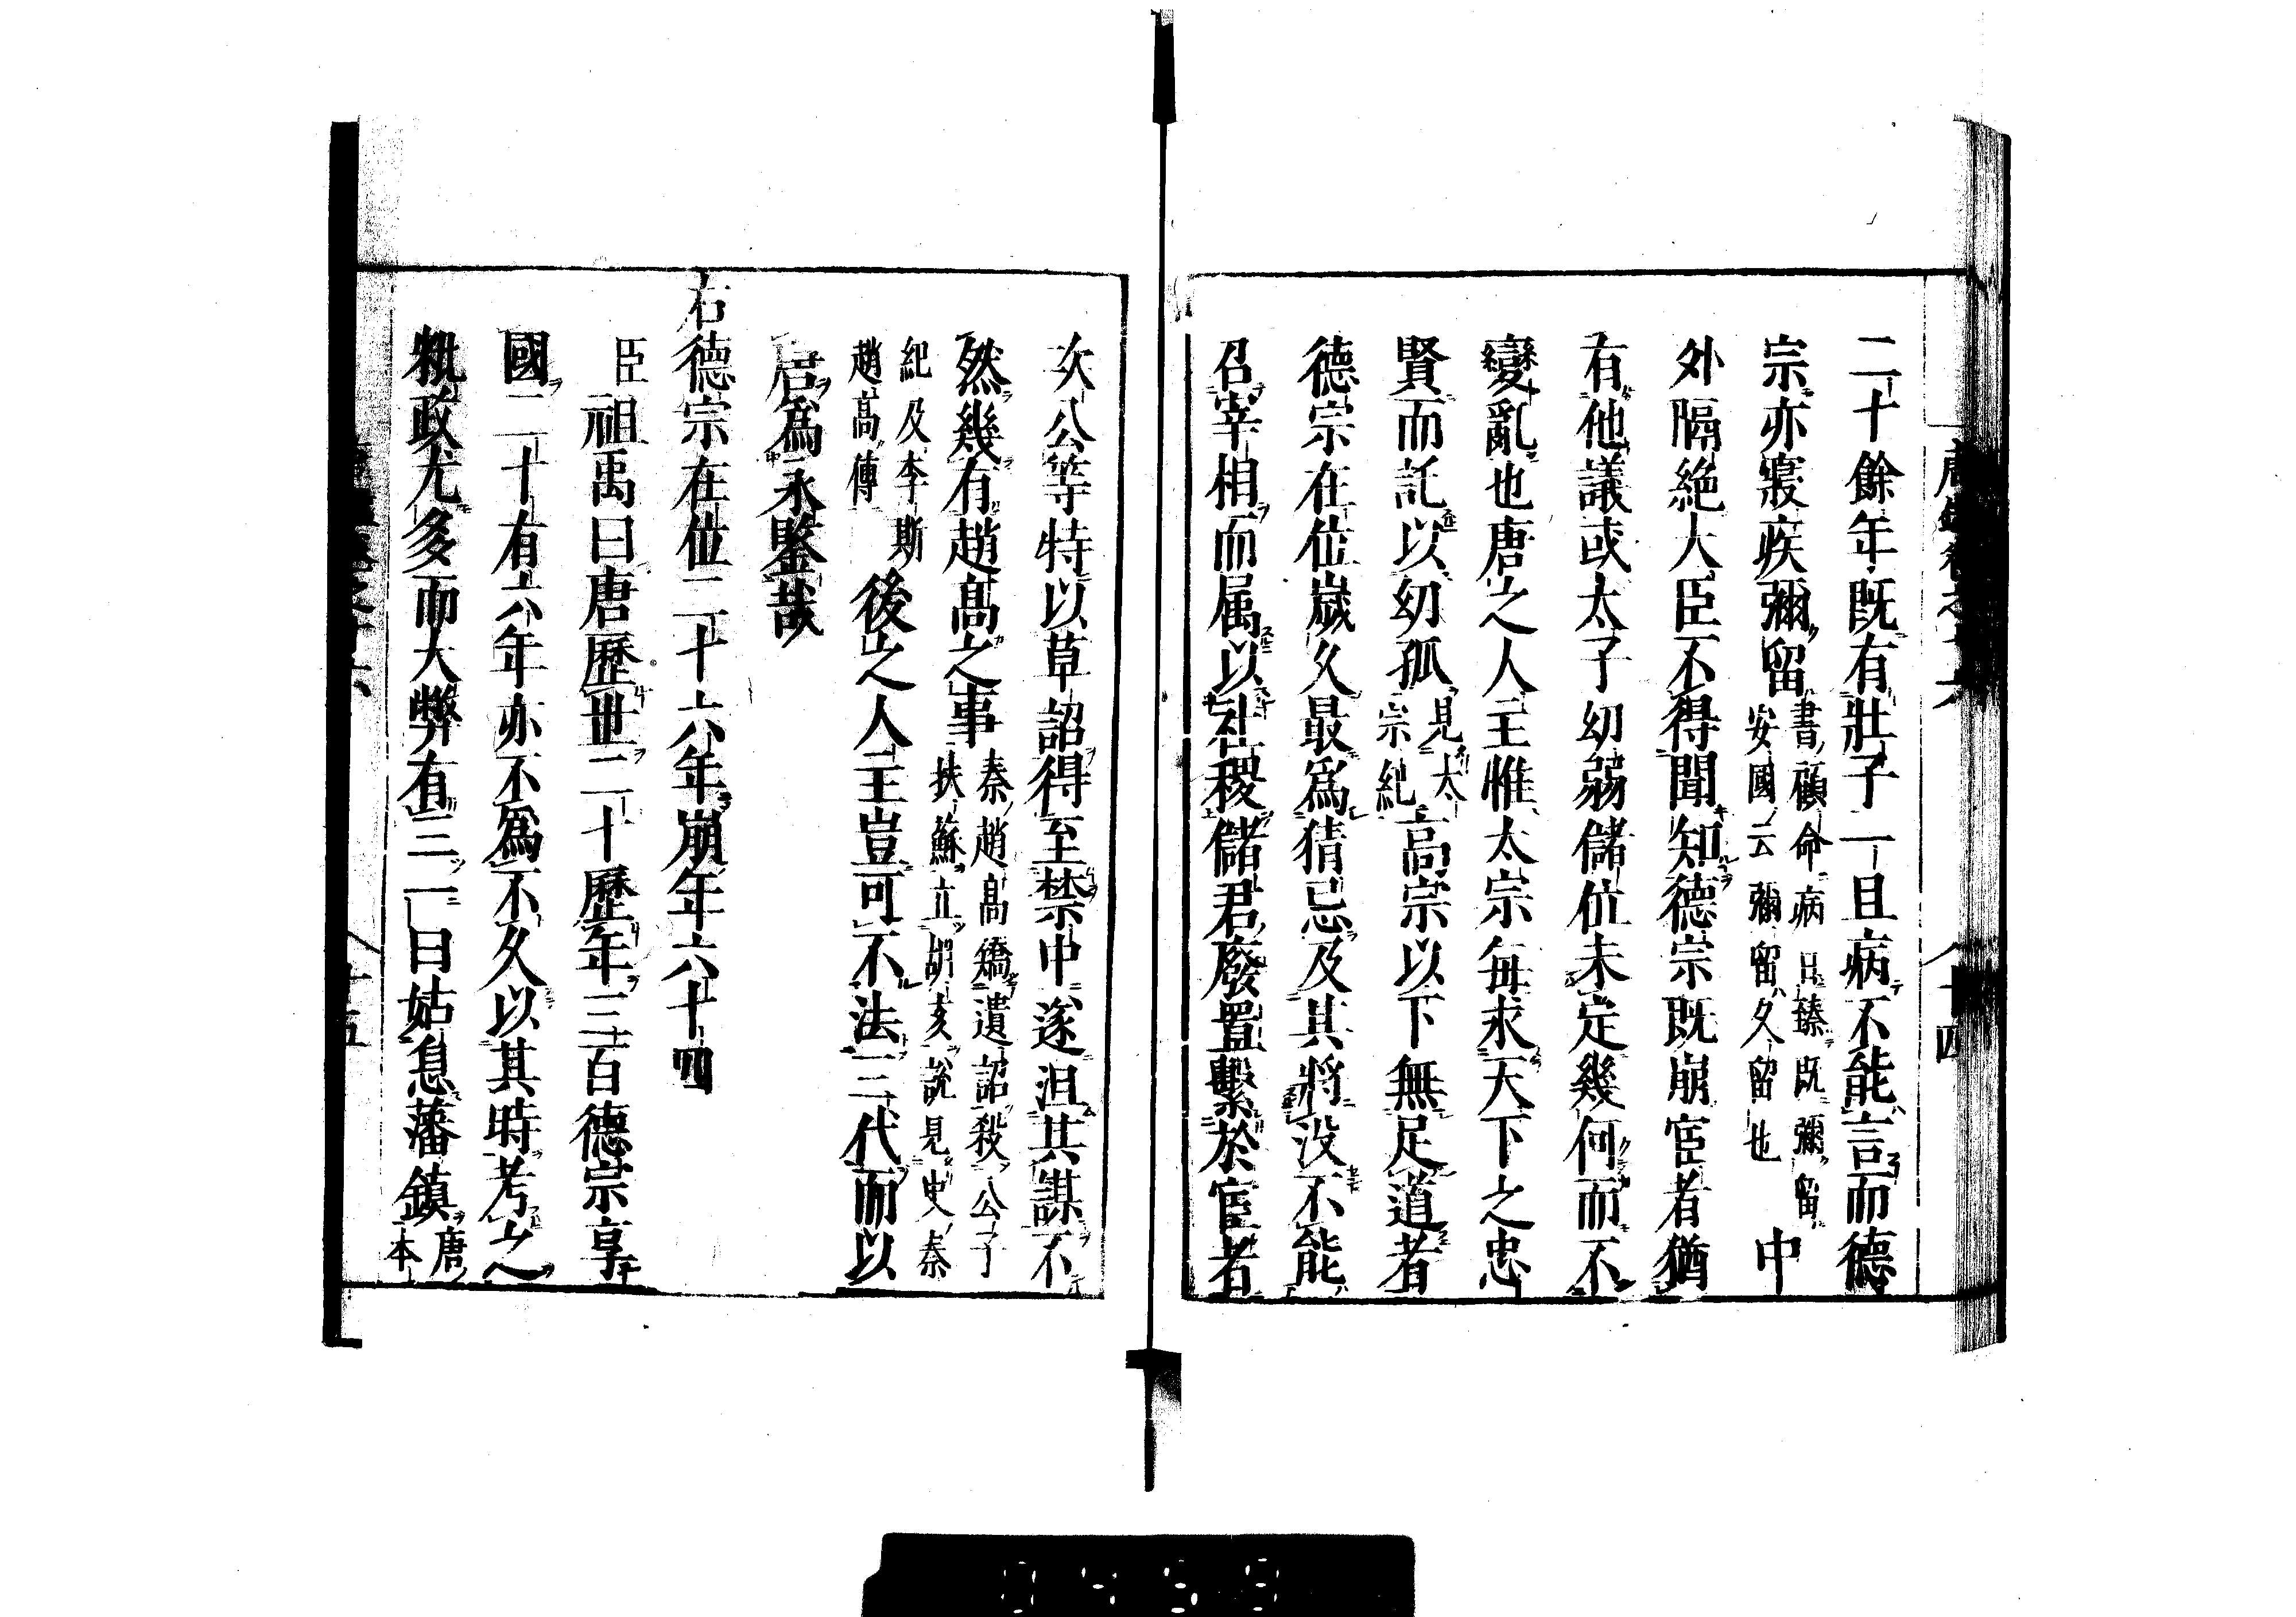 二十餘年既有壯子一旦病不能言而德
宗亦寢疾彌留書顧命病日臻既彌留安國云彌留久留也中
外隔絶大臣不得聞知德宗既崩宦者猶
有他議或太子幼弱儲位未定幾何而不
變亂也唐之人主惟太宗每求天下之忠
賢而託以幼孤見太宗紀高宗以下無足道者
德宗在位歲久最爲猜忌及其將没不能
召宰相而属以社稷儲君廢置繫於宦者
次公等特以草詔得至禁中遂沮其謀不
然幾有趙高之事秦趙高矯遺詔殺公子扶蘇立胡亥説見史秦
紀及李斯趙高傳後之人主豈可不法三代而以
唐爲永鑒哉
右德宗在位二十六年崩年六十四
臣祖禹曰唐歷世二十歷年三百德宗享
國二十有六年亦不爲不久以其時考之
秕政尤多而大弊有三一曰姑息藩鎮唐本